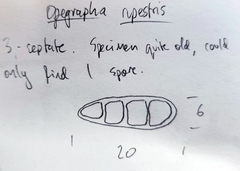 Opegrapha rupestris
3-septate. Specimen quite old, could
only find 1 spore.
6
20